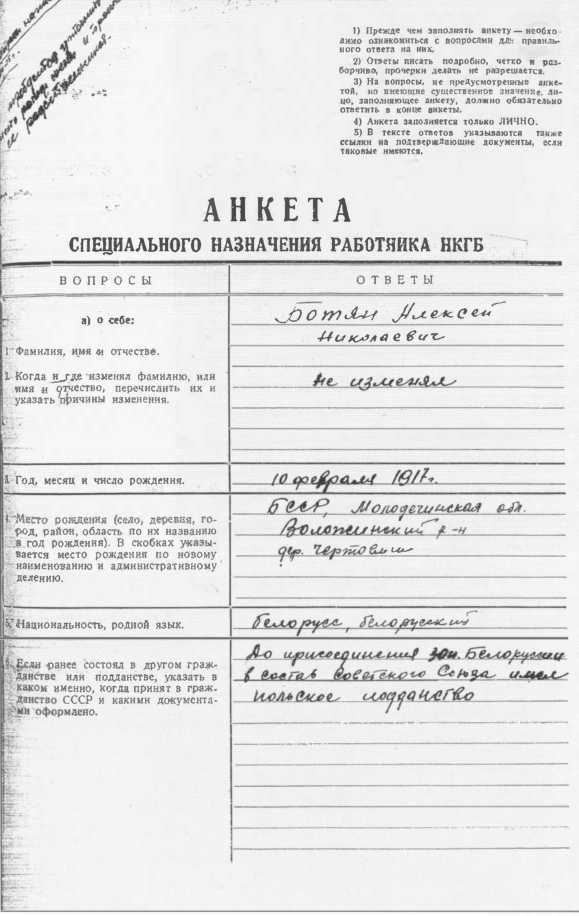 1) Прежде чем заполнять анкету — необхо-
димо ознакомиться с вопросами для правиль-
ного ответа на них.
2) Ответы писать подробно, четко и раз-
борчиво, прочерки делать не разрешается.
3) На вопросы, не предусмотренные анке-
той, но имеющие существенное значение, ли-
цо, заполняющее анкету, должно обязательно
ответить в конце анкеты.
4) Анкета заполняется только ЛИЧНО.
5) В тексте ответов указываются также
ссылки на подтверждающие документы, если
таковые имеются.
АНКЕТА
СПЕЦИАЛЬНОГО НАЗНАЧЕНИЯ РАБОТНИКА НКГБ
ВОПРОСЫ
ОТВЕТЫ
а) о себе:
1. Фамилия, имя и отчество.
Ботян Алексей
Николаевич
2. Когда и где изменял фамилию, или
имя и отчество, перечислить их и
указать причины изменения.
Не изменял
3. Год, месяц и число рождения.
10 февраля 1917г.
4. Место рождения (село, деревня, го-
род, район, область по их названию
в год рождения). В скобках указы-
вается место рождения по новому
наименованию и административному
делению.
БССР, Молодечинская обл.
Воложинский р-н
дер. Чертовичи
5. Национальность, родной язык.
белорусс, белорусский
6. Если ранее состоял в другом граж-
данстве или подданстве, указать в
каком именно, когда принят в граж-
данство СССР и какими документа-
ми оформлено.
До присоединения зап. Белоруссии
в состав Советского Союза имел
польское подданство